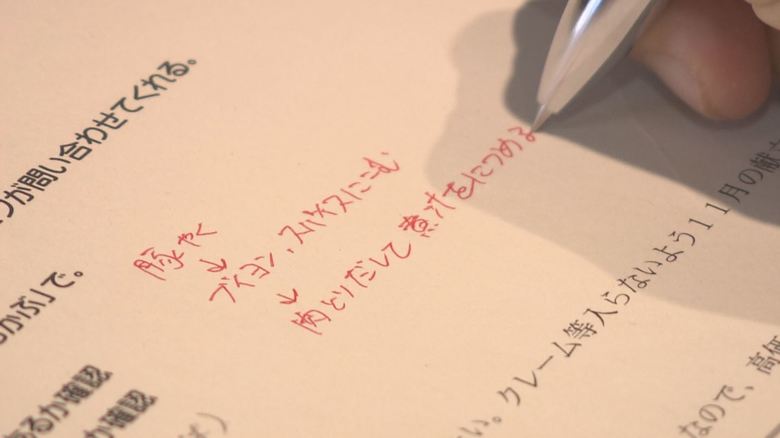 つが問い合わせてくれる。
かぶ」で。
あるか確認
か確認
豚やく
↓
ブイヨン、スパイスにこむ
↓
肉とりだして煮汁をにつめる
い。クレーム等入らないよう11月の献
なので、高価